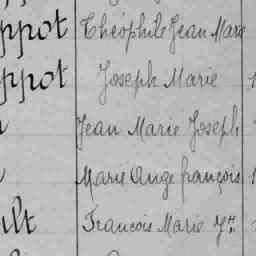 ppot Théophile Jean Marie
ppot Joseph Marie
Jean Marie Joseph
Marie Ange françois
ult Francois Marie Jn